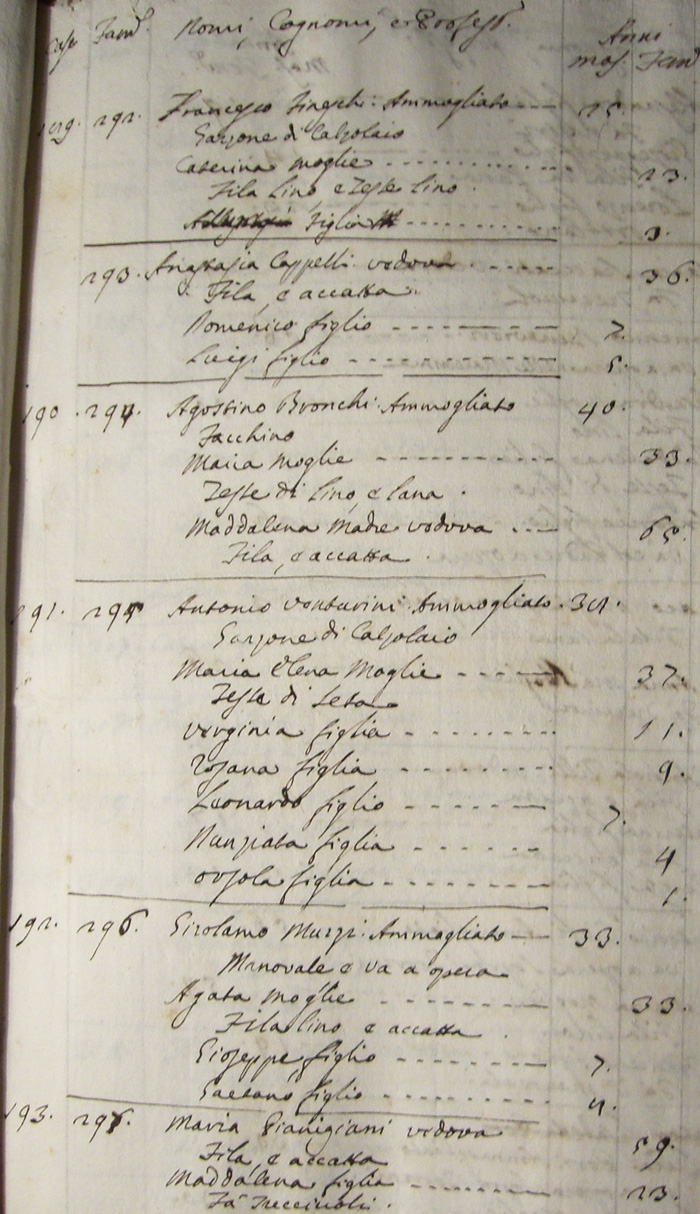 Case Fam. Nomi, Cognomi, e Profess. Anni
mas. Fem.
292. Francesco Fineschi. Ammogliato 25.
Garzone di Calzolaio
Caterina moglie 23.
Fila Lino e Tesse lino.
figlia 3.
293. Anastasia Cappelli vedova 36.
Fila, e accatta.
Domenico figlio 7.
Luigi figlio 5.
190 294. Agostino Bronchi. Ammogliato 40.
Facchino
Maria Moglie 33.
Tesse di lino, e lana.
Maddalena Madre vedova 65.
Fila, e accatta.
191. 295 Antonio Venturini. Ammogliato. 34.
Garzone di Calzolaio
Maria Elena Moglie 37.
Tesse di seta
Verginia figlia 11.
Rosana figlia 9.
Leonardo figlio 7.
Nunziata figlia 4
Orsola figlia 1.
192. 296. Girolamo Muzzi. Ammogliato 33.
Manovale e va a opera
Agata moglie 33.
Fila lino e accatta.
Gioseppe figlio 7.
Gaetano figlio 4.
193. 297. Maria Gianigiani vedova 59.
Fila, e accatta
Maddalena figlia 23.
Fa Treccinoli.